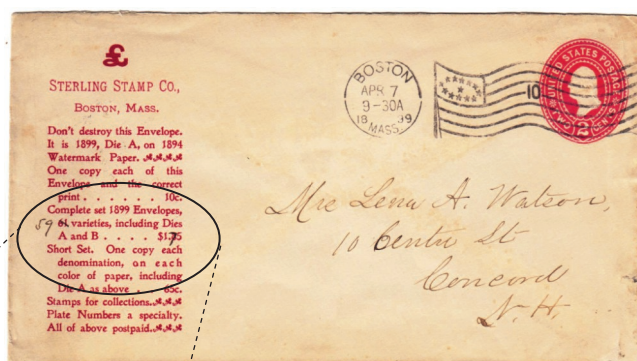 £
STERLING STAMP CO.,
BOSTON, MASS.
Don't destroy this Envelope.
It is 1899, Die A, on 1894
Watermark Paper.
One copy each of this
Envelope and the correct
print . . . . . . . 10c.
Complete set 1899 Envelopes,
59 61 varieties, including Dies
A and B . . . . .
Short Set. One copy each
denomination, on each
color of paper, including
Die A as above . 65c.
Stamps for collections..
Plate Numbers a specialty.
All of above postpaid..
BOSTON
APR 7
9-30A
1899
MASS.
10
UNITED STATES POSTAGE
2
Lena A. Watson,
10 Centre St
Concord
N. H.